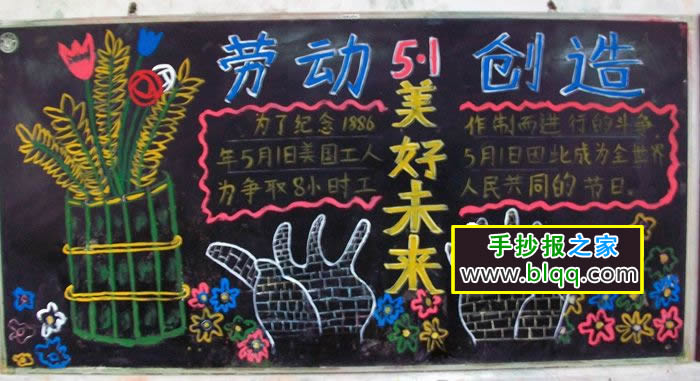 劳动 5·1 创造
美好未来
为了纪念1886
年5月1日美国工人
为争取8小时工
作制而进行的斗争
5月1日因此成为全世界
人民共同的节日。
手抄报之家
www.blqq.com